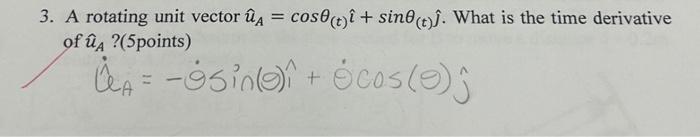 3. A rotating unit vector û_A = cosθ_(t)î + sinθ_(t)ĵ. What is the time derivative
of û_A ?(5points)
û̇_A = -θ̇sin(θ)î + θ̇cos(θ)ĵ